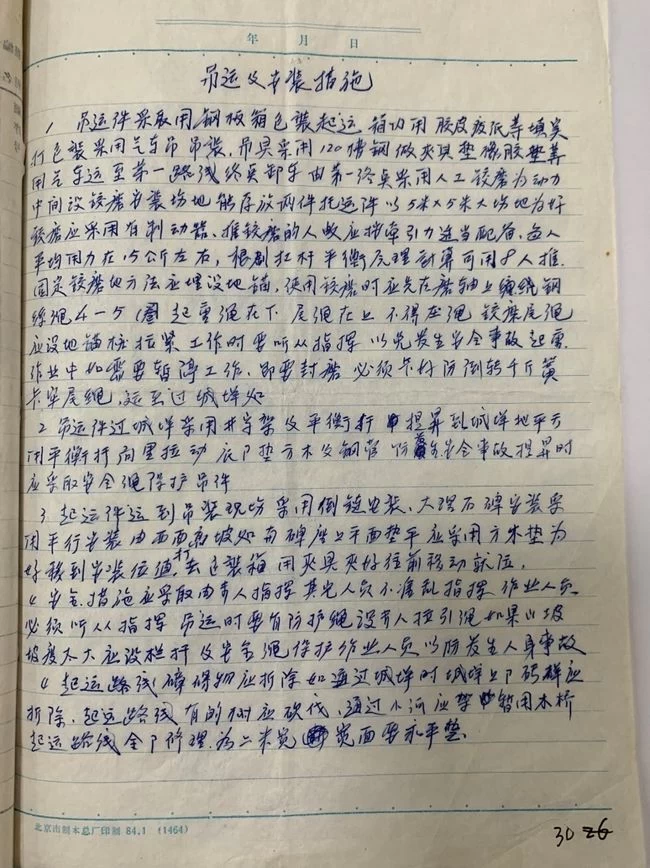 年 月 日
吊运及安装措施
1 吊运件采取用钢板箱包装起运 箱内用胶皮废纸等填实
打包装采用汽车吊吊装，吊具采用120槽钢做夹具垫橡胶垫等
用汽车运至第一路线终点卸车由第一终点采用人工铰磨为动力
中间设铰磨安装场地能存放两件托运件以5米×5米大场地为好
铰磨应采用有制动器、推铰磨的人数应按牵引力适当配备，每人
平均用力在15公斤左右，根据杠杆平衡原理计算可用8人推.
固定铰磨地方法应埋设地锚，使用铰磨时应先在磨轴上缠绕钢
丝绳4－5圈 起重绳在下 尾绳在上 不得压绳 铰磨尾绳
应设地锚桩拉紧 工作时要听从指挥 以免发生安全事故 起重
作业中如需要暂停工作，即要封磨 必须卡好防倒转千斤簧
卡牢尾绳，运至过城墙处
2 吊运件过城墙采用井字架及平衡杆 提升到城墙地平方
用平衡杆向里拉动 底下垫方木及钢管 防发生安全事故提升时
应采取安全绳保护吊件
3 起运件运到吊装现场采用倒链安装、大理石碑安装采
用平行安装 由西面高坡处向碑座上平面垫平应采用方木垫为
好移到安装位置，打去包装箱 用夹具夹好往前移动就位，
4 安全措施应采取由专人指挥 其它人员不准乱指挥 作业人员
必须听从指挥 吊运时要有防护绳设专人拉引绳 如果山坡
坡度太大应设栏杆及安全绳保护作业人员以防发生人身事故
4 起运路线障碍物应拆除 如通过城墙时城墙上下码群应
拆除、起运路线有的树应砍伐，通过小河应架暂用木桥
起运路线全下修理，为二米宽 宽面要求平垫.
北京市制本总厂印制 84.1 (1464)
30 26